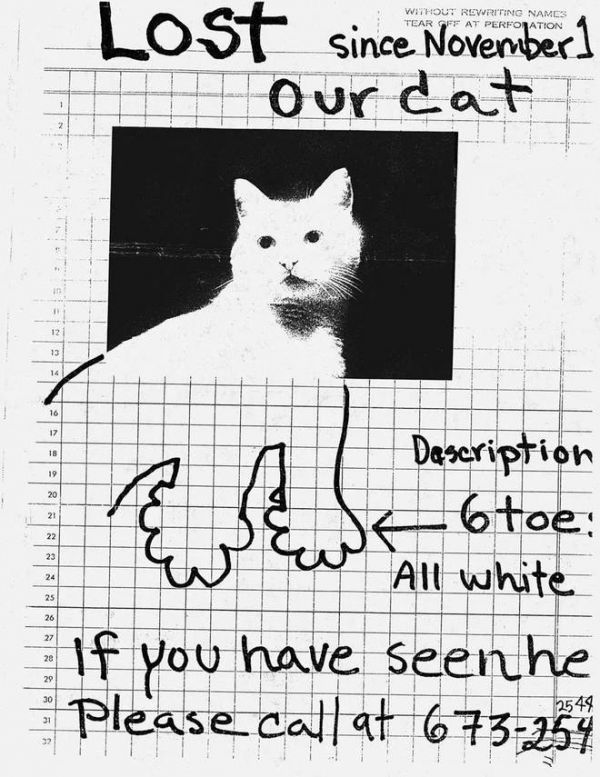 WITHOUT REWRITING NAMES
TEAR OFF AT PERFORATION
Lost since November 1
our cat
1
2
11
12
13
14
16
17
18
Description
19
20
6 toe:
21
22
23
All white
24
25
26
27
If you have seen he
28
29
30
Please call at 673-254
31
32